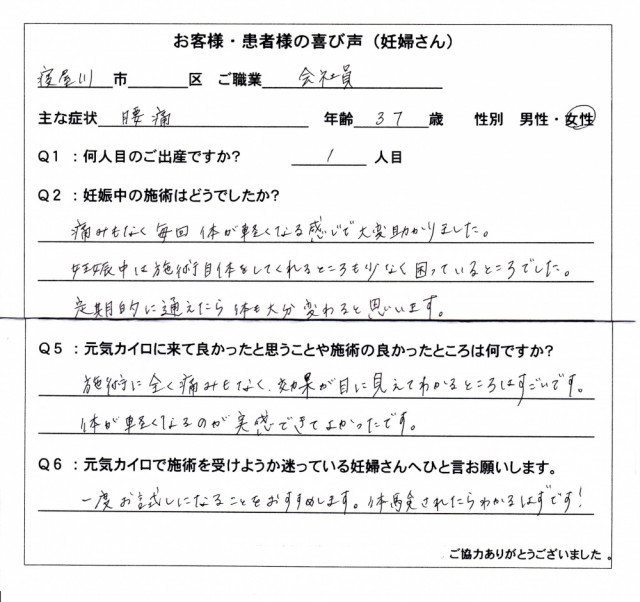 お客様・患者様の喜び声（妊婦さん）
寝屋川 市 区 ご職業 会社員
主な症状 腰痛 年齢 37 歳 性別 男性・女性
Q1：何人目のご出産ですか？ 1 人目
Q2：妊娠中の施術はどうでしたか？
痛みもなく毎回 体が軽くなる感じで大変助かりました。
妊娠中は施術自体をしてくれるところも少なく困っているところでした。
定期的に通えたら体も大分変わると思います。
Q5：元気カイロに来て良かったと思うことや施術の良かったところは何ですか？
施術に全く痛みもなく、効果が目に見えてわかるところはすごいです。
体が軽くなるのが実感できてよかったです。
Q6：元気カイロで施術を受けようか迷っている妊婦さんへひと言お願いします。
一度お試しになることをおすすめします。体験されたらわかるはずです！
ご協力ありがとうございました。